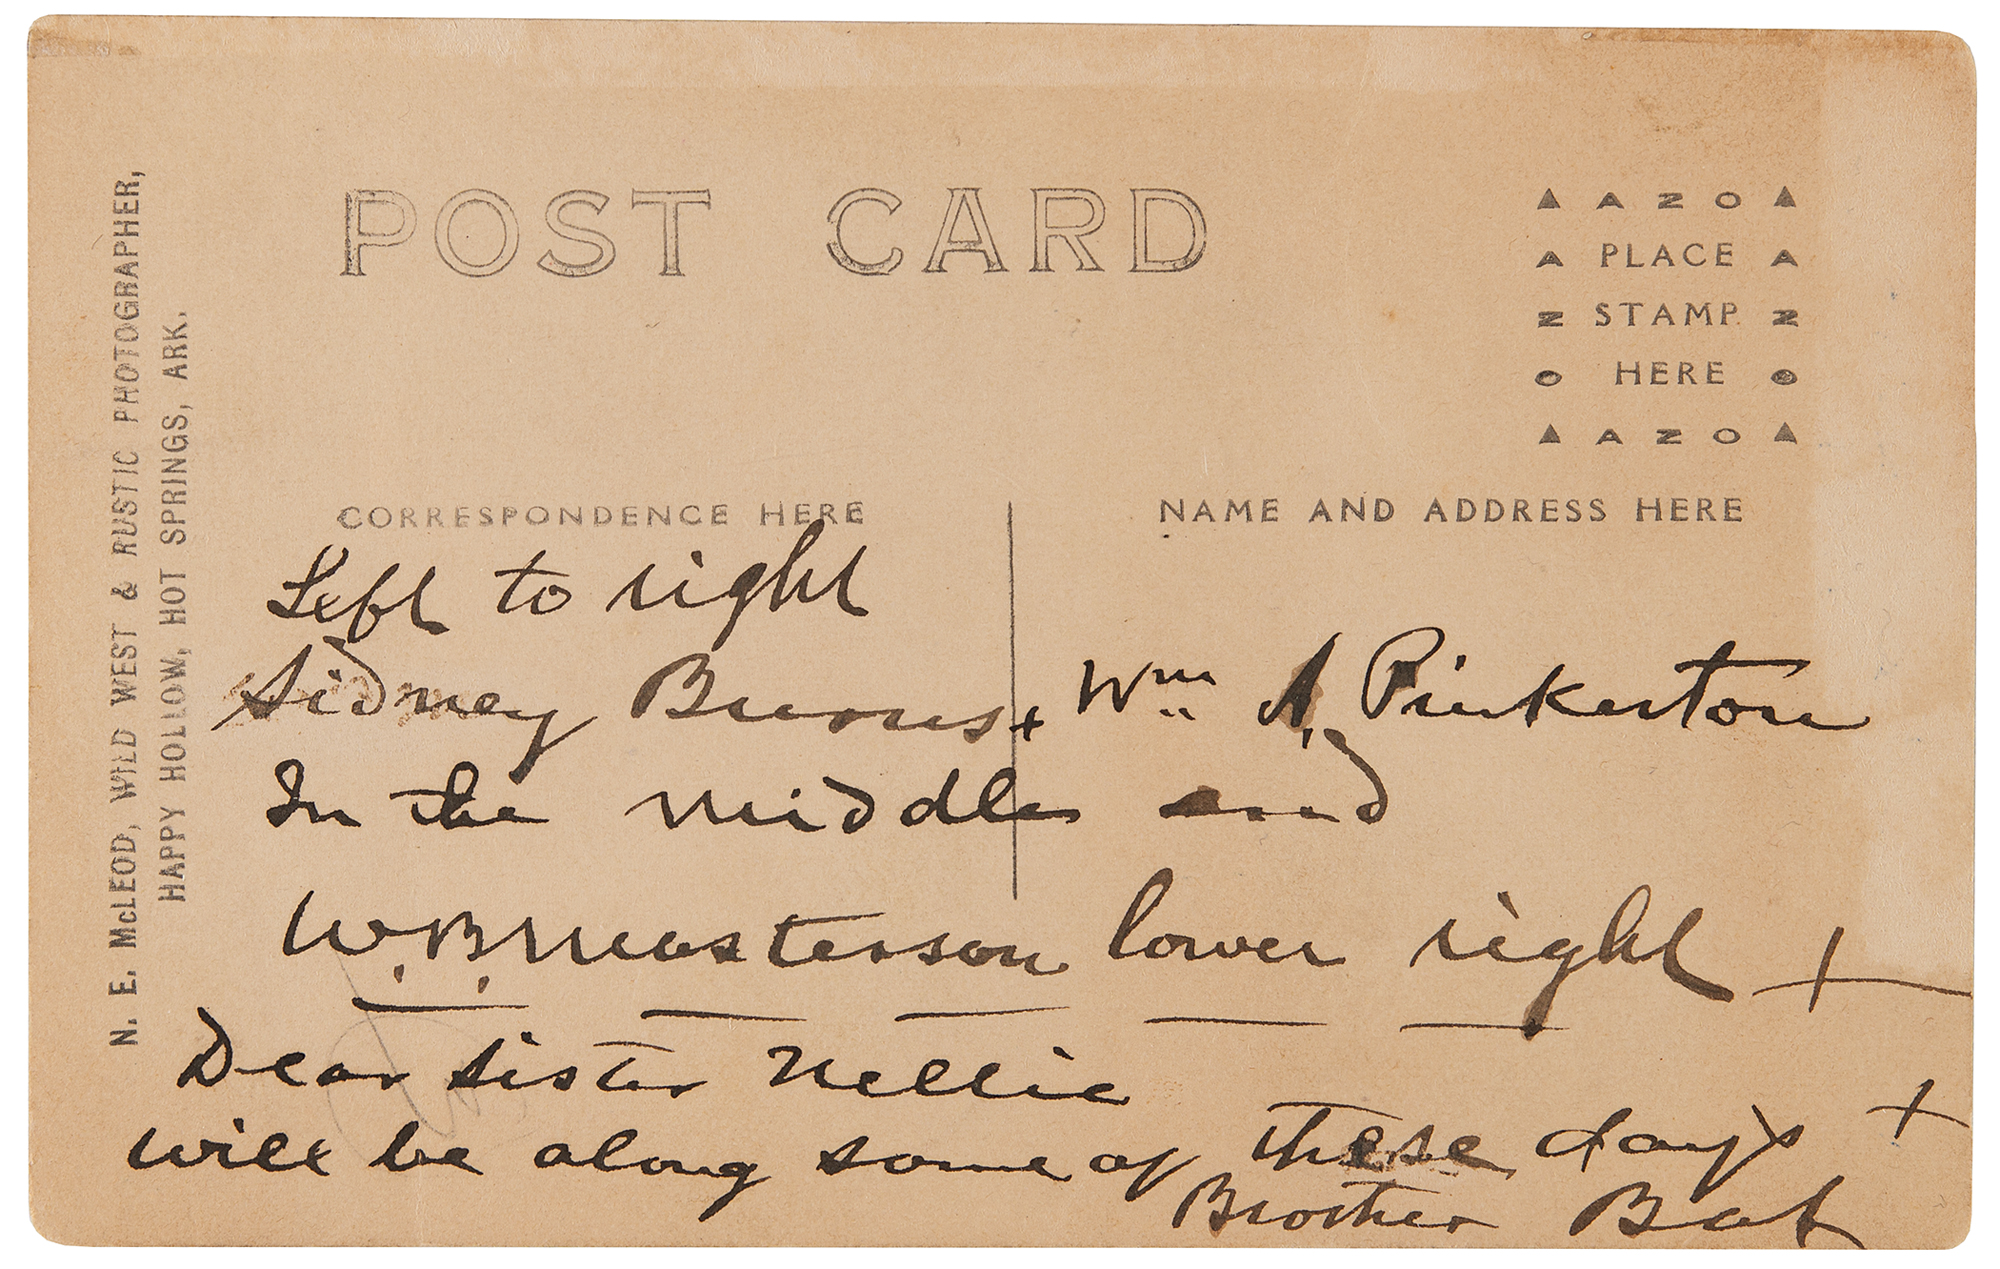 N. E. McLEOD, WILD WEST & RUSTIC PHOTOGRAPHER,
HAPPY HOLLOW, HOT SPRINGS, ARK.
POST CARD
▲ A Z O ▲
A PLACE A
Z STAMP Z
O HERE O
▲ A Z O ▲
CORRESPONDENCE HERE
NAME AND ADDRESS HERE
Left to right
Sidney Burns + Wm A. Pinkerton
In the middle and
W.B. Masterson lower right +
Dear Sister Nellie
will be along some of these days +
Brother Bat